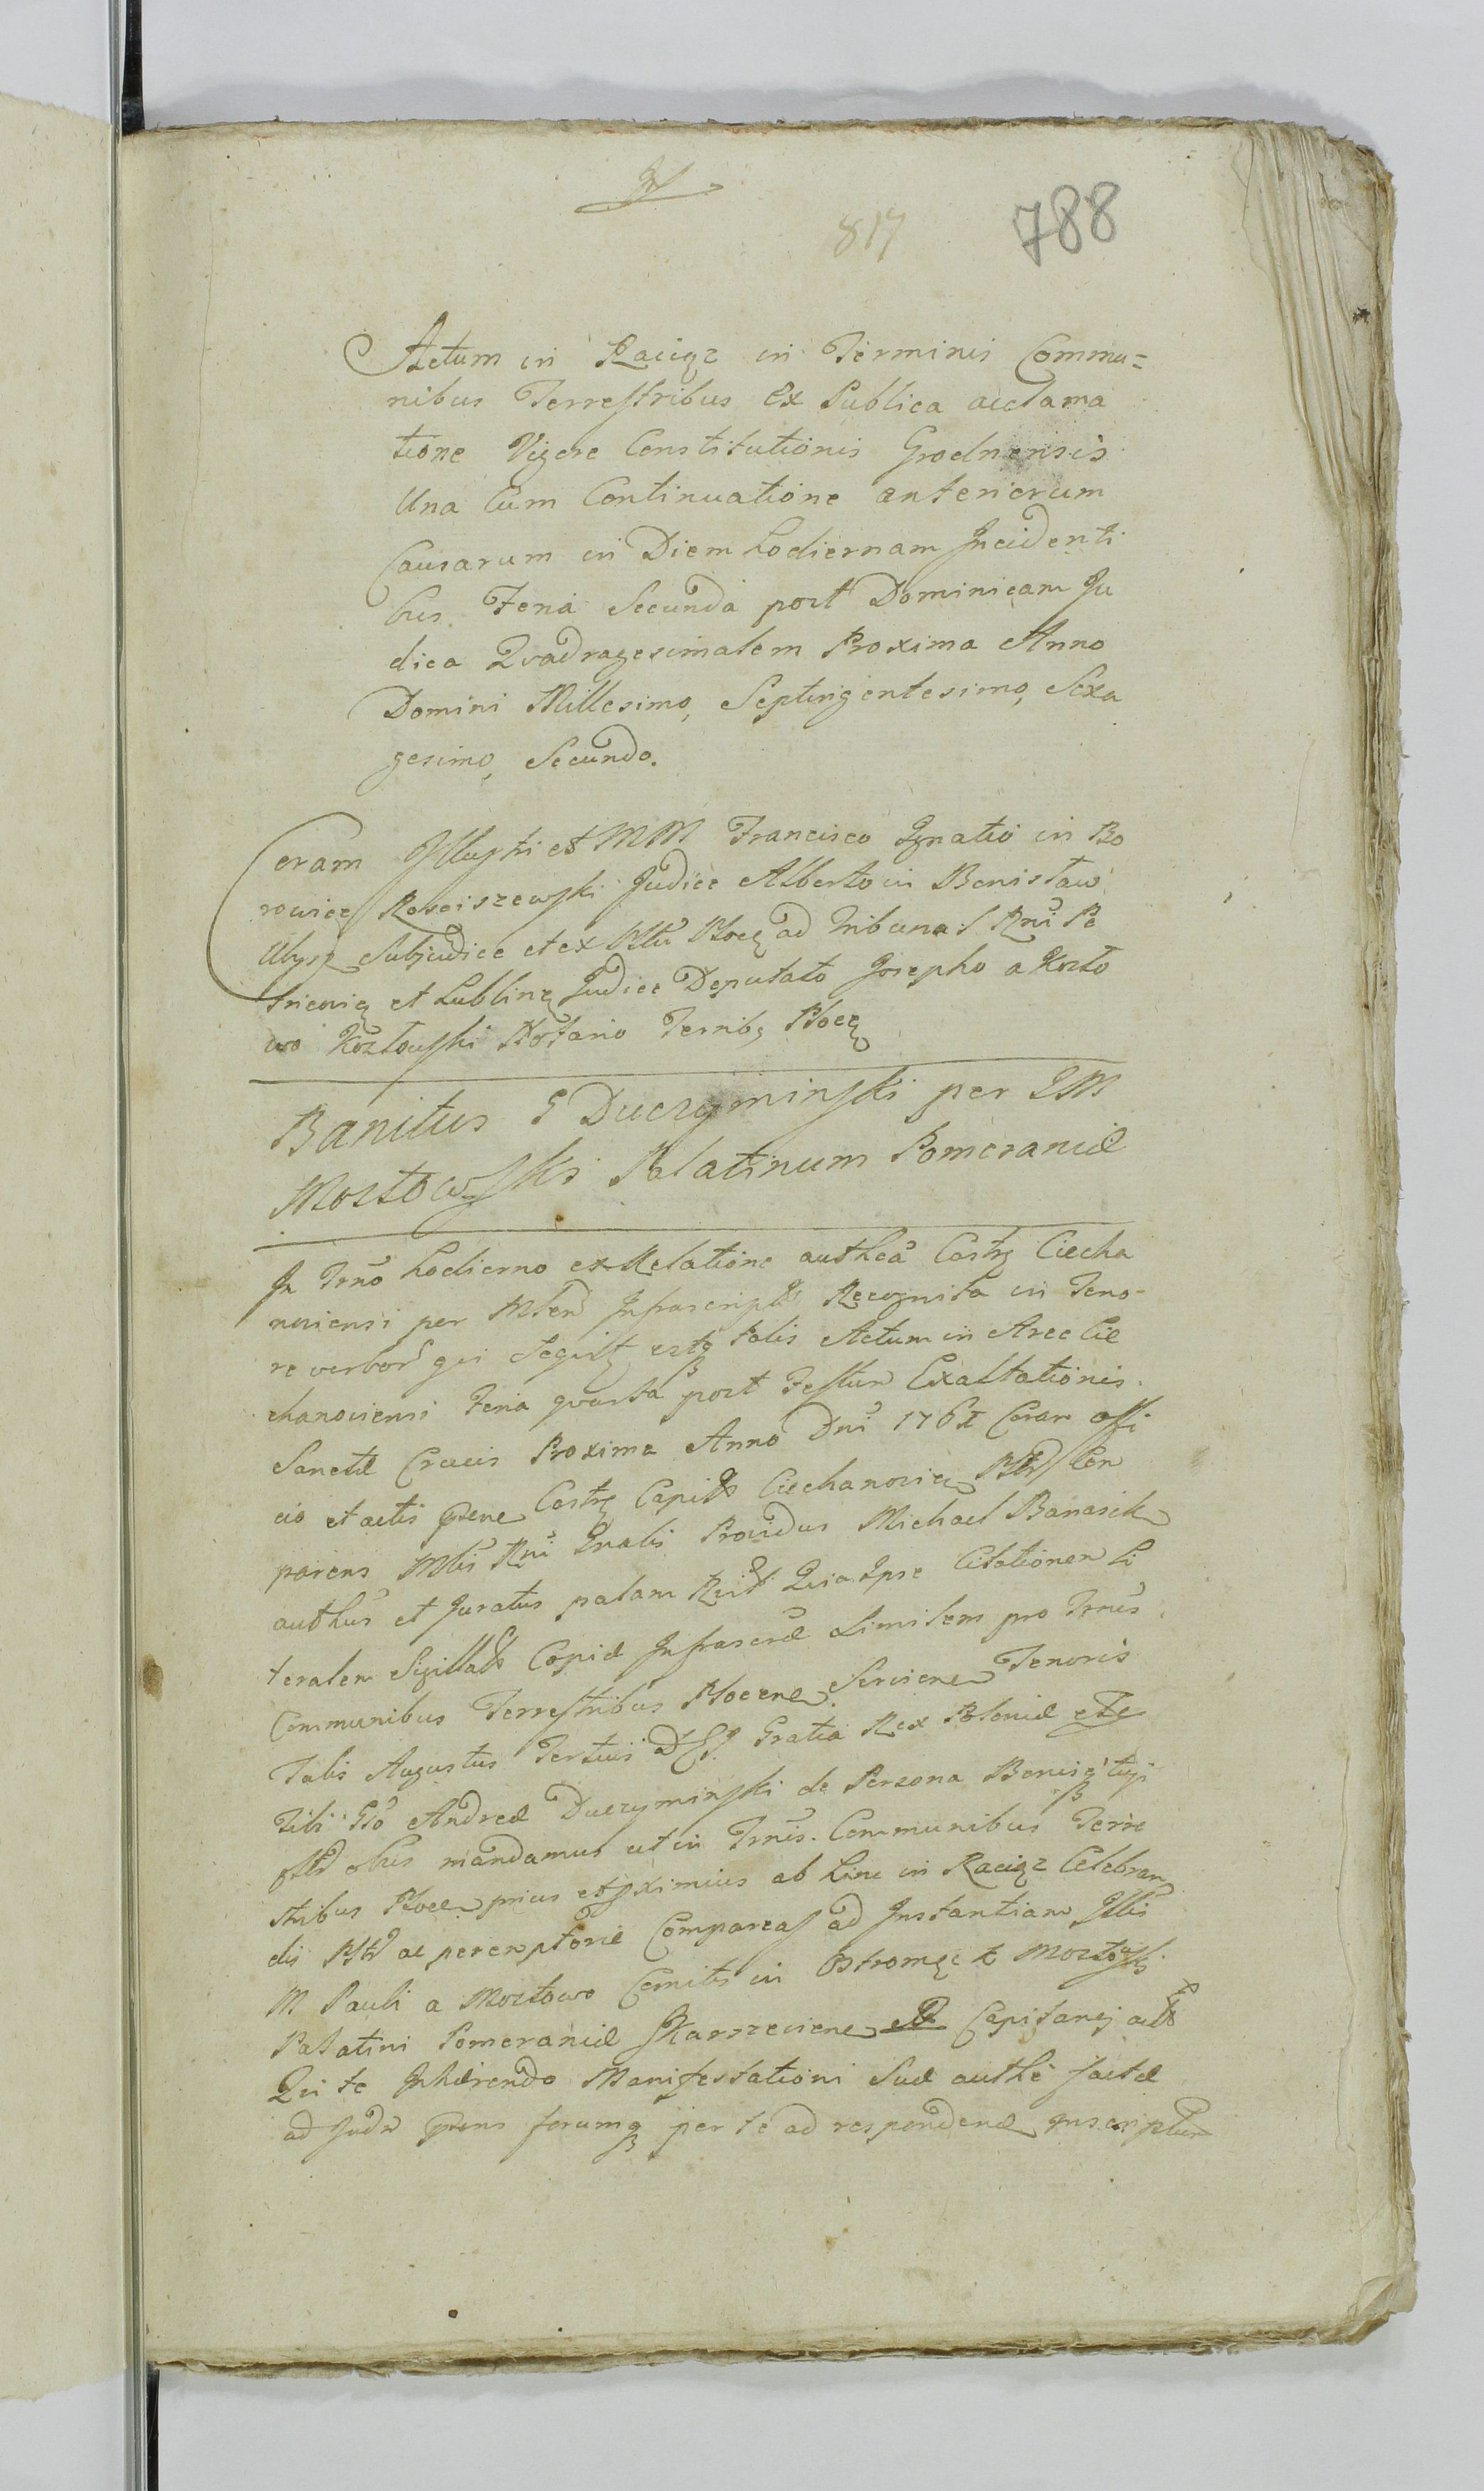 819 788
Actum in Raciąz in Terminis Commu=
nibus Terrestribus Ex Publica acclama
tione Vigore Constitutionis Grodnensis
Una Cum Continuatione anteriorum
Causarum in Diem hodiernam Incidenti
bus Feria Secunda post Dominicam Ju
dica Quadragesimalem Proxima Anno
Domini Millesimo, Septingentesimo, Sexa
gesimo, Secundo.
Coram Illustri et MM Francisco Ignatio in Bo
rowice Rosciszewski Judice Alberto in Benisław
Ulysz Subjudice et ex Pltu Ploce ad Tribunal Rni Pe
tricovię et Lublinę Judice Deputato Josepho a Kozło
wo Kozłowski Notario Terribq Plocę
Banitus G Duczyminski per IM
Mostowski Palatinum Pomeraniæ
In Trno hodierno ex Relatione authca Castrę Ciecha
noviensi per Mtend Infrascriptt Recognita in Teno-
re verbor qui sequit estq talis Actum in Arce Cie
chanoviensi Feria quarta post Festum Exaltationis
Sanctæ Crucis Proxima Anno Dni 1761 Coram offi
cio et actis pnte Castrę Capitt Ciechanovien Pltr Com
parens Mtlis Rni Gnalis Providus Michael Banasik
authus et Juratus palam Rcit Quia Ipse Citationem Li
teralem Sigillatt Copiæ Infrascræ Similem pro Trnis
Communibus Terrestribus Plocene Serviene Tenoris
Talis Augustus Tertius D G Gratia Rex Poloniæ etc
Tibi Gso Andreæ Duczyminski de Persona Bonisq tuis
mandamus ut in Trnis Communibus Terre
stribus Plocen prius et pximius ab hinc in Raciąz Celebran
dis Pltr ac peremptorie Compareas ad Instantiam Illis
M Pauli a Mostowo Comitis in Ostromęcko Mostowski
Palatini Pomeraniæ Skarszeviene Capitanej actt
Qui te Inhærendo Manifestationi Suæ authe factæ
ad Judm pnens forumq per te ad respondend inscriptum